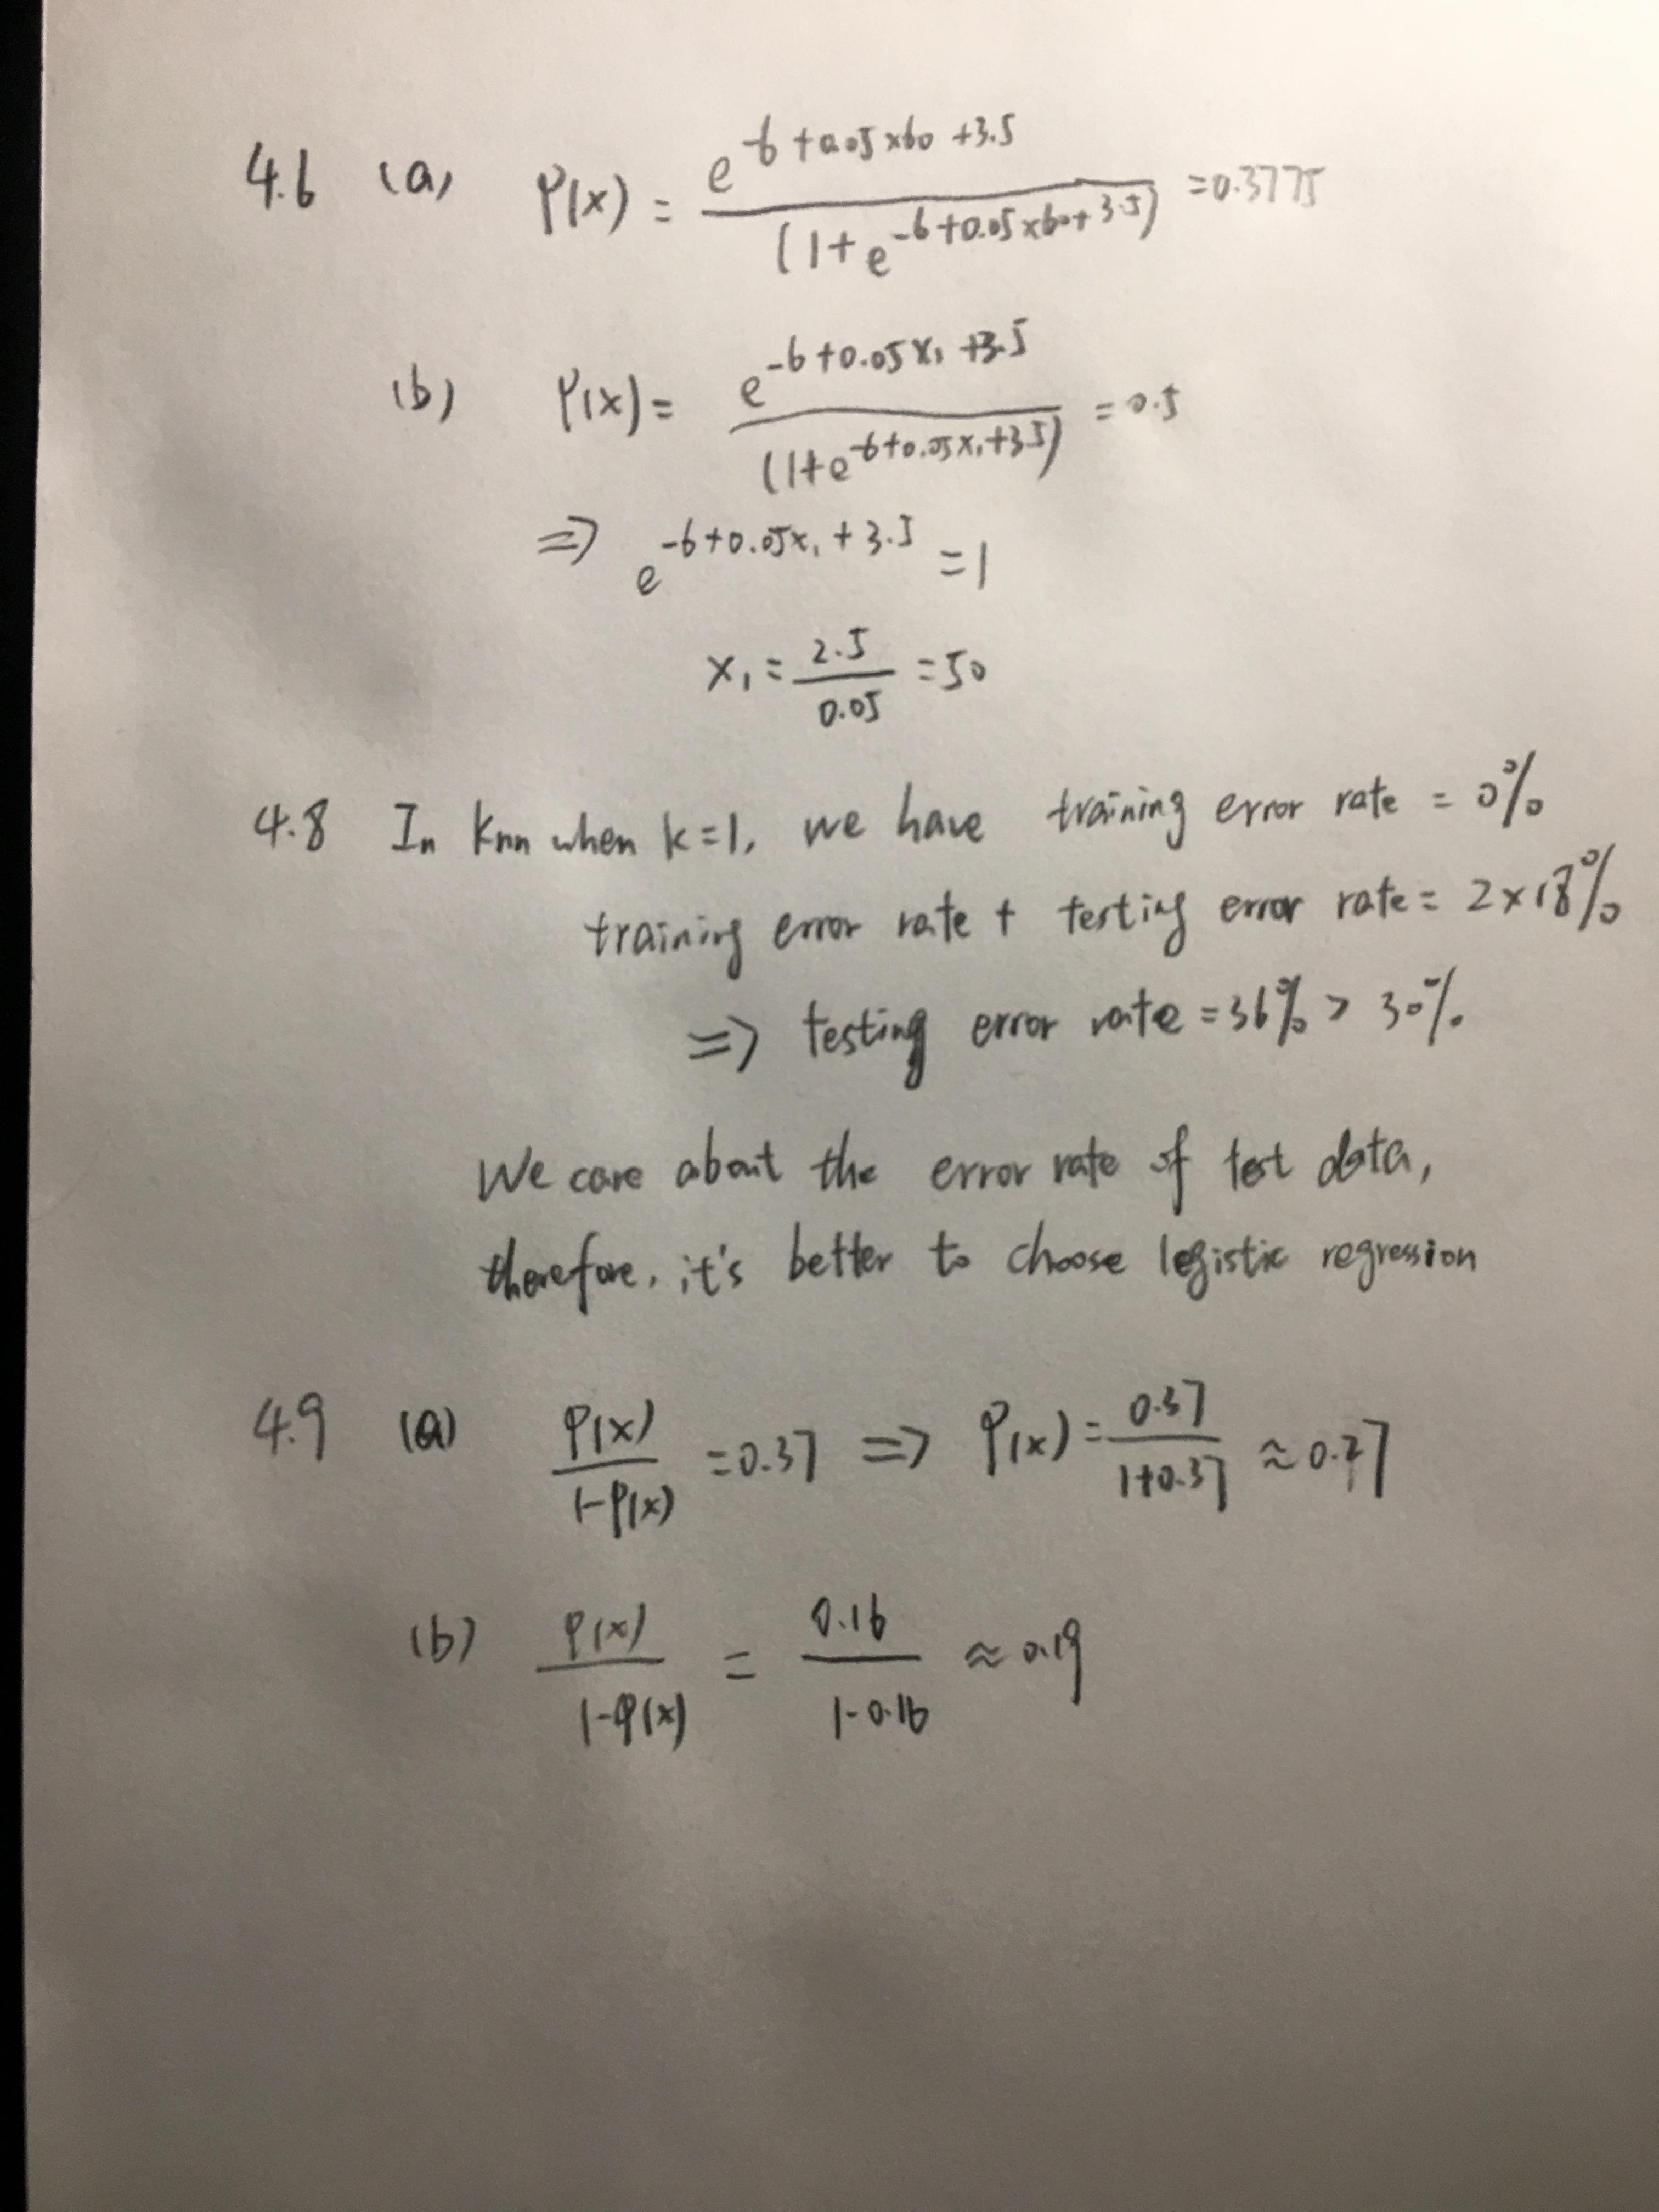 4.6 (a) P(x) = e^{-6+0.05×60+3.5} / (1+e^{-6+0.05×60+3.5}) =0.3775
(b) P(x)= e^{-6+0.05x₁+3.5} / (1+e^{-6+0.05x₁+3.5}) =0.5
=> e^{-6+0.05x₁+3.5} =1
x₁ = 2.5 / 0.05 =50
4.8 In Knn when k=1, we have training error rate = 0%
training error rate + testing error rate = 2×18%
=> testing error rate =36% > 30%
We care about the error rate of test data,
therefore, it's better to choose logistic regression
4.9 (a) P(x) / 1-P(x) =0.37 => P(x) = 0.37 / 1+0.37 ≈ 0.27
(b) P(x) / 1-P(x) = 0.16 / 1-0.16 ≈ 0.19